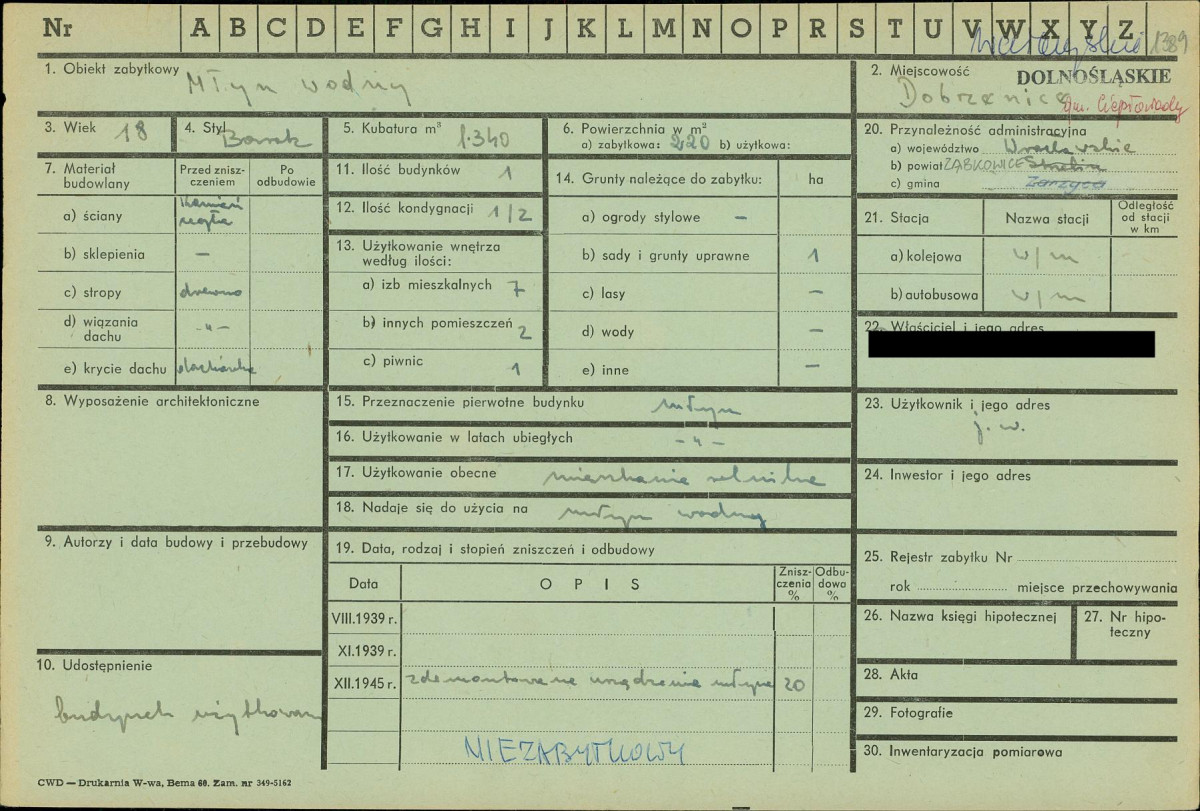 Nr A B C D E F G H I J K L M N O P R S T U V W X Y Z
1389
1. Obiekt zabytkowy Młyn wodny
2. Miejscowość DOLNOŚLĄSKIE
Dobrzenice gm. Ciepłowody
3. Wiek 18
4. Styl Barok
5. Kubatura m³ 1.340
6. Powierzchnia w m²
a) zabytkowa: 220 b) użytkowa:
7. Materiał budowlany
Przed zniszczeniem
Po odbudowie
a) ściany kamień cegła
b) sklepienia —
c) stropy drewno
d) wiązania dachu -„-
e) krycie dachu dachówka
8. Wyposażenie architektoniczne
9. Autorzy i data budowy i przebudowy
10. Udostępnienie
budynek użytkowany
11. Ilość budynków 1
12. Ilość kondygnacji 1/2
13. Użytkowanie wnętrza według ilości:
a) izb mieszkalnych 7
b) innych pomieszczeń 2
c) piwnic 1
14. Grunty należące do zabytku: ha
a) ogrody stylowe —
b) sady i grunty uprawne 1
c) lasy —
d) wody —
e) inne —
15. Przeznaczenie pierwotne budynku młyn
16. Użytkowanie w latach ubiegłych -„-
17. Użytkowanie obecne mieszkanie rolnika
18. Nadaje się do użycia na młyn wodny
19. Data, rodzaj i stopień zniszczeń i odbudowy
Data OPIS Zniszczenia % Odbudowa %
VIII.1939 r.
XI.1939 r.
XII.1945 r. zdemontowane urządzenie młyna 20
NIEZABYTKOWY
20. Przynależność administracyjna
a) województwo Wrocławskie
b) powiat ZĄBKOWICE Strzelin
c) gmina Zarzyca
21. Stacja Nazwa stacji Odległość od stacji w km
a) kolejowa w/m
b) autobusowa w/m
22. Właściciel i jego adres
23. Użytkownik i jego adres
j. w.
24. Inwestor i jego adres
25. Rejestr zabytku Nr
rok miejsce przechowywania
26. Nazwa księgi hipotecznej
27. Nr hipoteczny
28. Akta
29. Fotografie
30. Inwentaryzacja pomiarowa
CWD — Drukarnia W-wa, Bema 60. Zam. nr 349-5162